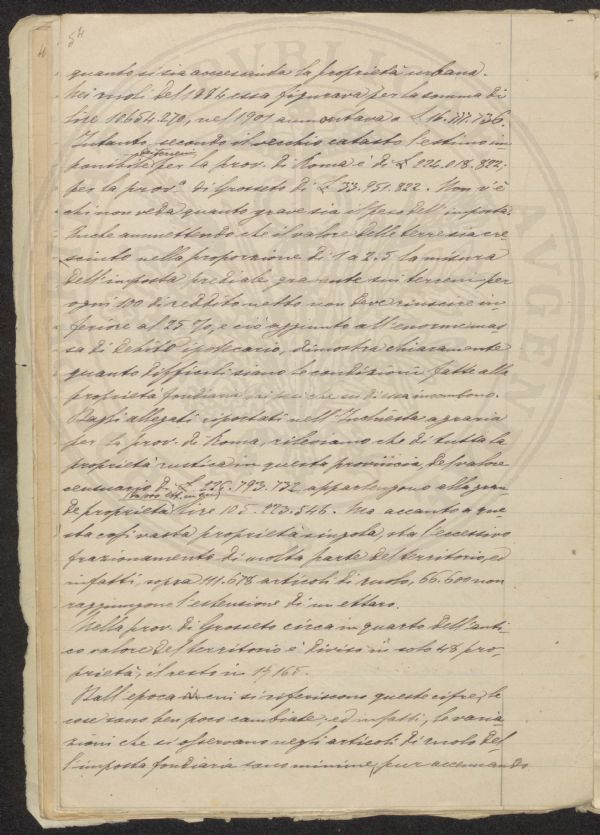 54
quanto si sia accresciuta la proprietà urbana.
Nei ruoli del 1874 essa figurava per la somma di
lire 10654.270, nel 1901 ammontava a £ 16.777.736.
Intanto, secondo il vecchio catasto l'estimo im-
ponibile per la prov. di Roma è di £ 224.018.822;
per la prov.a di Grosseto di £ 33.951.822. Non v'è
chi non veda quanto grave sia il peso dell'imposta.
Anche ammettendo che il valore delle terre sia cre-
sciuto nella proporzione di 1 a 2.5 la misura
dell'imposta prediale gravante sui terreni per
ogni 100 di reddito netto non deve riuscire in-
feriore al 25 %, e ciò aggiunto all'enorme mas-
sa di debito ipotecario, dimostra chiaramente
quanto difficili siano le condizioni fatte alla
proprietà fondiaria dai pesi che su di essa incombono.
Dagli allegati riportati nell'Inchiesta agraria
per la prov. di Roma, rileviamo che di tutta la
proprietà rustica in questa provincia, del valore
censuario di £ 226.793.732 appartengono alla gran-
de proprietà lire 105.223.546. Ma accanto a que-
sta così vasta proprietà singola, sta l'eccessivo
frazionamento di molta parte del territorio, ed
infatti, sopra 111.678 articoli di ruolo, 66.600 non
raggiungono l'estensione di un ettaro.
Nella prov. di Grosseto circa un quarto dell'anti-
co valore del territorio è diviso in sole 48 pro-
prietà, il resto in 17,165.
Dall'epoca in cui si riferiscono queste cifre, le
cose sono ben poco cambiate, ed infatti, le varia-
zioni che si osservano negli articoli di ruolo del-
l'imposta fondiaria sono minime, pur accennando